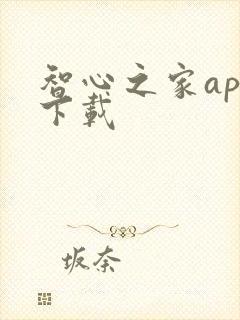 智心之家ap
下载
坂奈